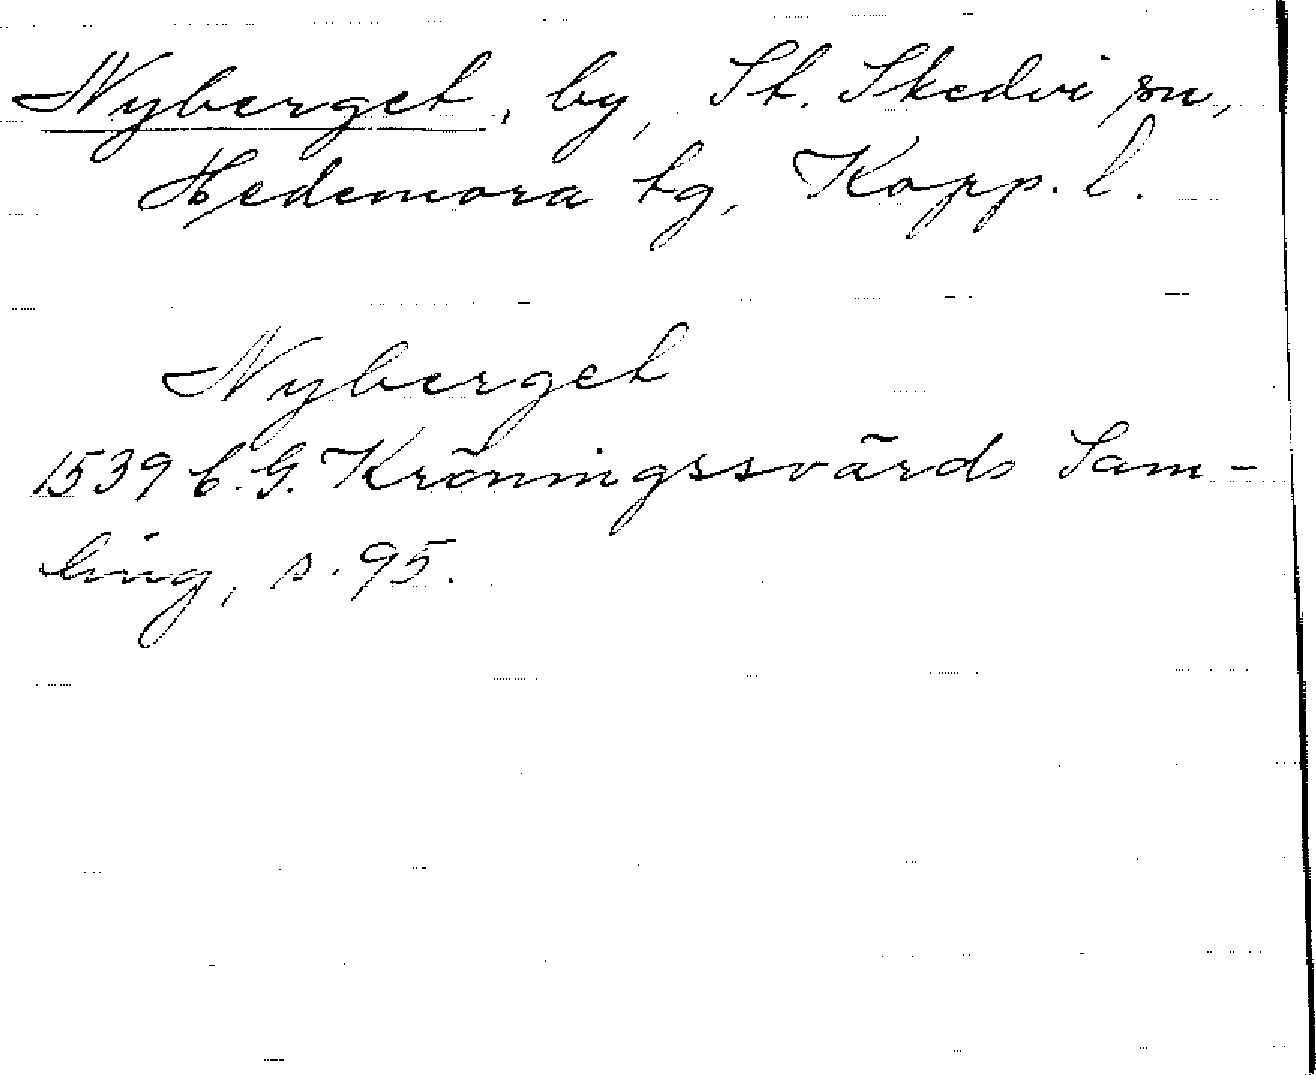 Nyberget, by, St. Skedvi sn,
Hedemora tg, Kopp. l.
Nyberget
1539 C. G. Kröningssvärds Sam-
ling, s. 95.